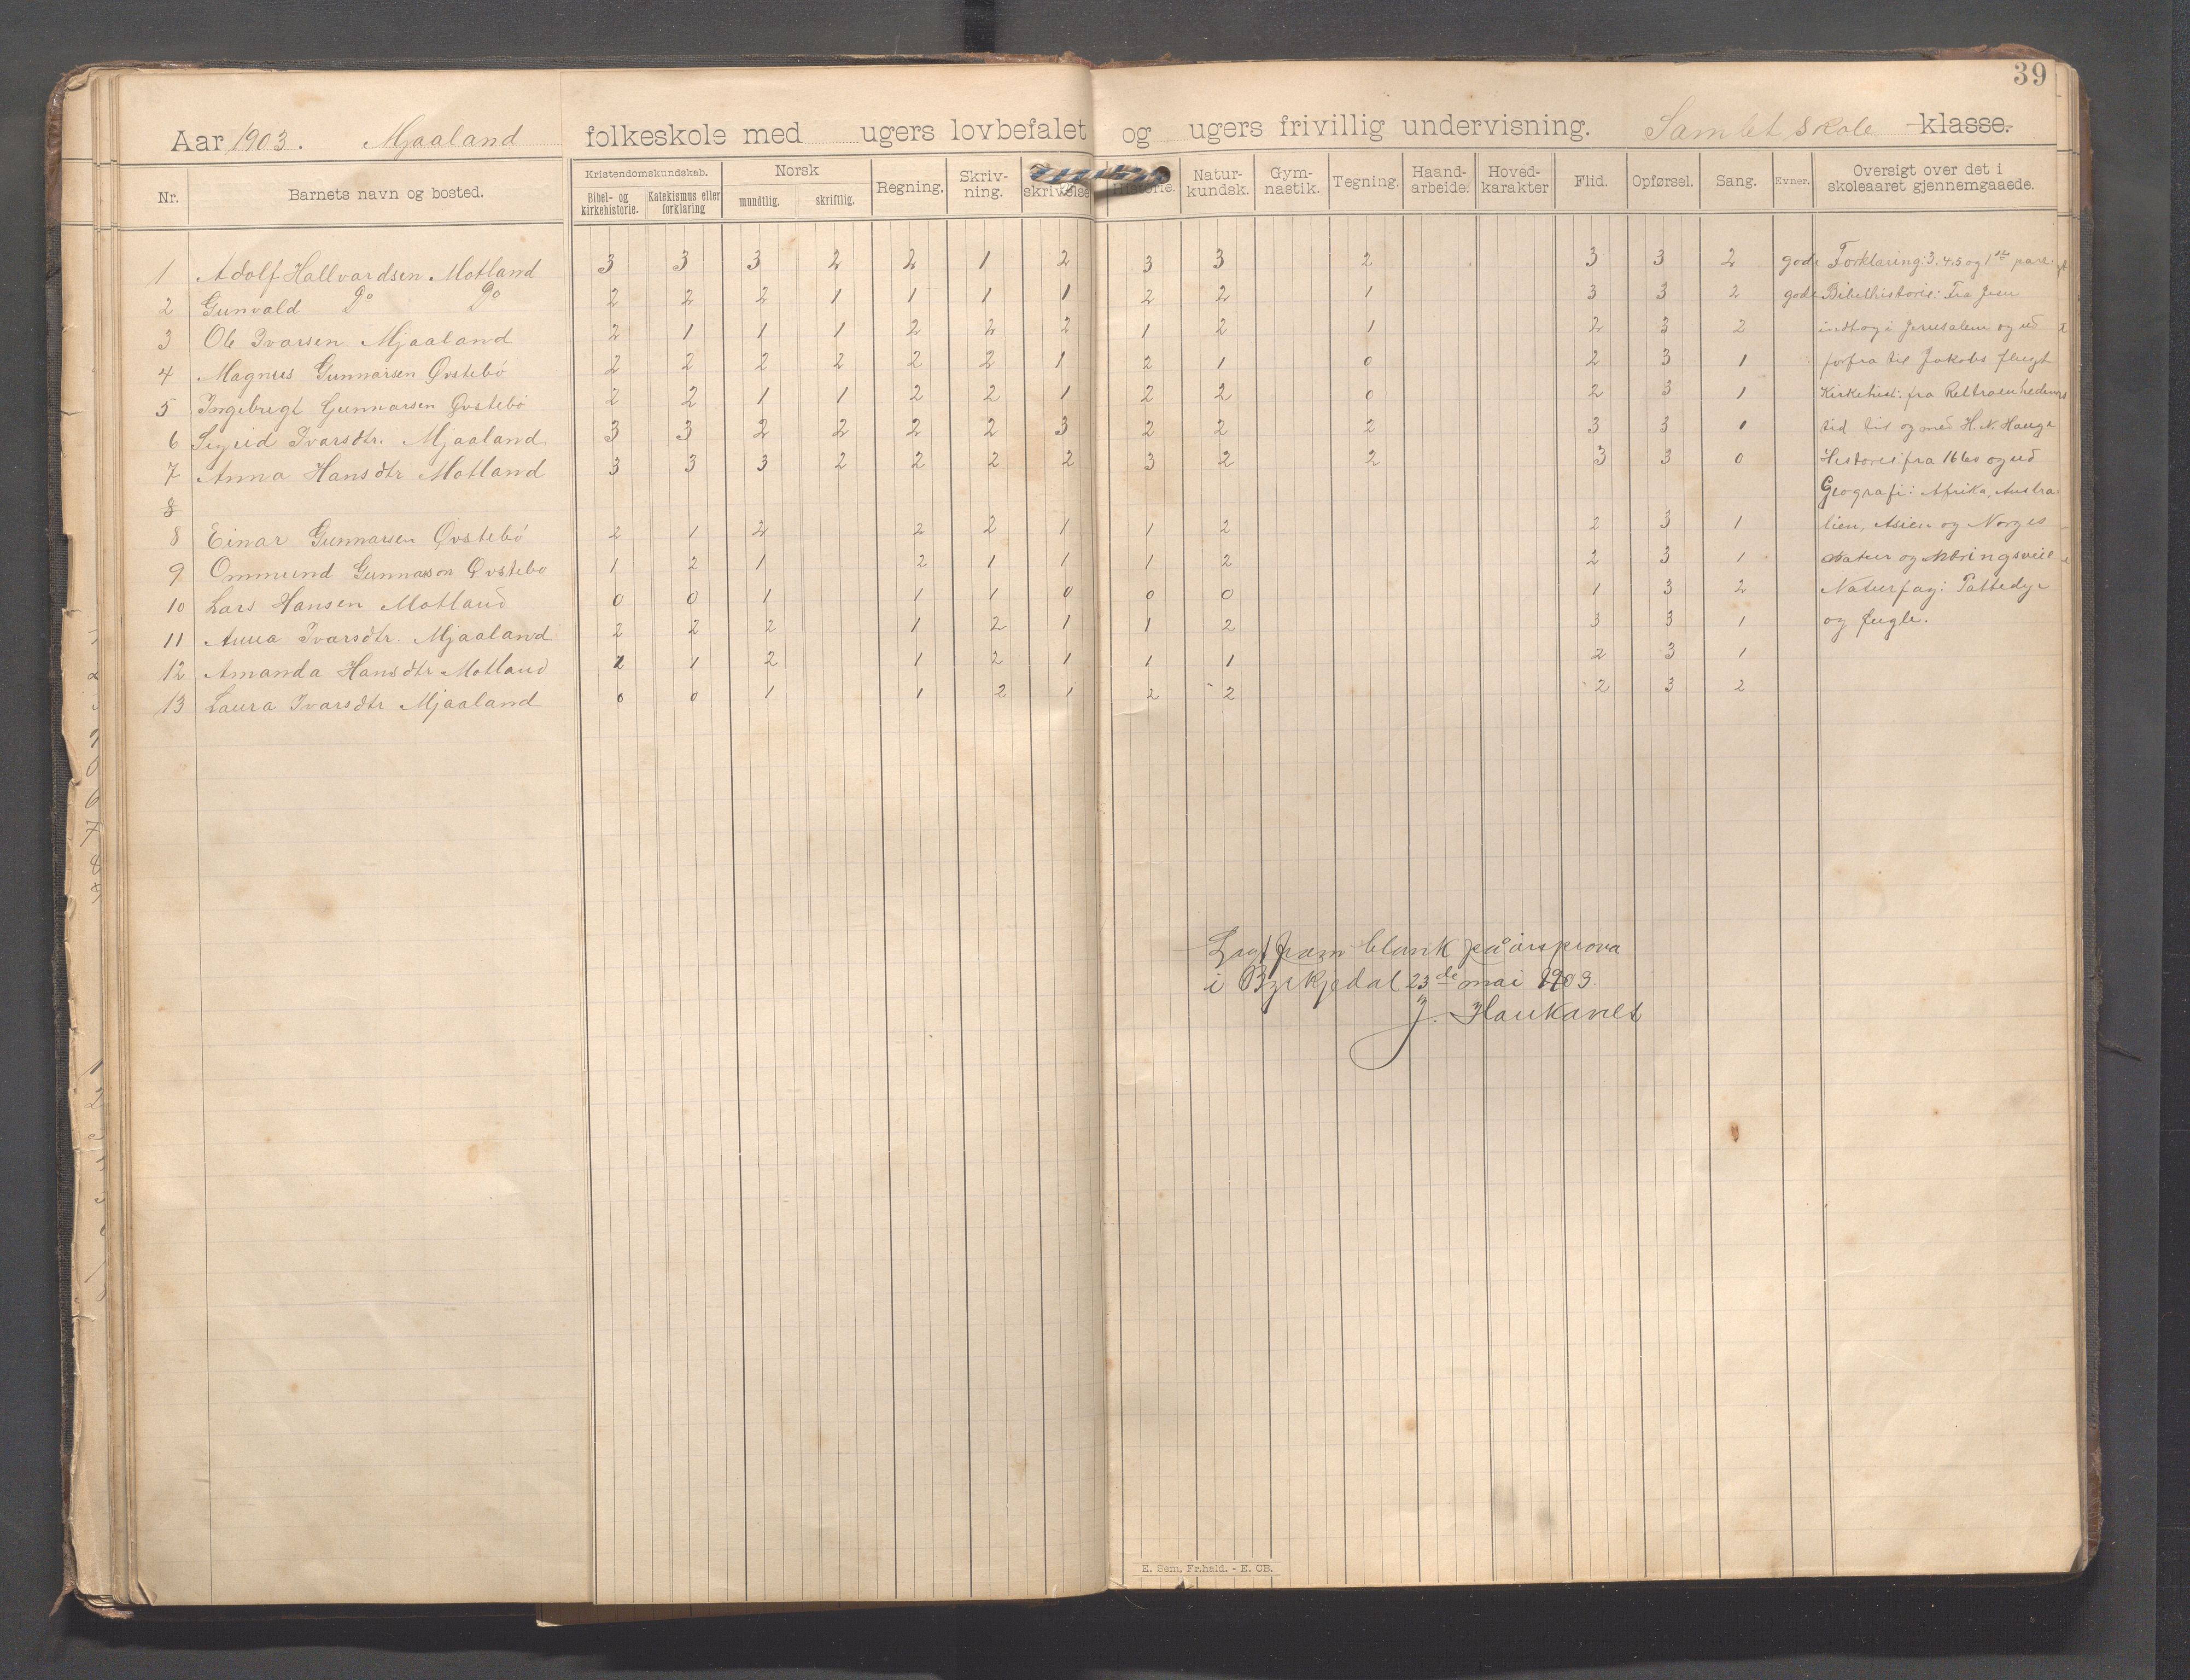 39
Aar 1903. Mjaaland folkeskole med ugers lovbefalet og ugers frivillig undervisning. Samlet skole klasse.
Nr. Barnets navn og bosted. Kristendomskundskab. Bibel- og kirkehistorie. Katekismus eller forklaring Norsk mundtlig. skriftlig. Regning. Skriv-ning. skrivelse Historie. Natur-kundsk. Gym-nastik. Tegning. Haand-arbeide. Hoved-karakter Flid. Opførsel. Sang. Evner. Oversigt over det i skoleaaret gjennemgaaede.
1 Adolf Hallvardsen Motland 3 3 3 2 2 1 2 3 3 2 3 3 2 gode Forklaring: 3. 4. 5 og 1ste part
2 Gunvald Do Do 2 2 2 1 1 1 1 2 2 1 3 3 2 gode Bibelhistorie: Fra Jesu
3 Ole Ivarsen Mjaaland 2 1 1 1 2 2 2 1 2 1 2 3 2 indtog i Jerusalem og ud
4 Magnus Gunnarsen Øvstebö 2 2 2 2 2 2 1 2 1 0 2 3 1 forfra til Jakobs flugt
5 Ingebrigt Gunnarsen Øvstebö 2 2 1 1 2 2 1 2 2 0 2 3 1 Kirkehist: fra
6 Sigrid Ivarsdtr. Mjaaland 3 3 2 2 2 2 3 2 2 2 3 3 1 tid til og med H. N. Hauge
7 Anna Hansdtr Motland 3 3 3 2 2 2 2 3 2 2 3 3 0 Historie: fra 1660 og ud
8 Geografi: Afrika, Austra-
8 Einar Gunnarsen Øvstebö 2 1 2 2 2 1 1 2 2 3 1 lien, Asien og Norges
9 Ommund Gunnarson Øvstebo 1 2 1 2 1 1 1 2 2 3 1 Natur og Næringsveie
10 Lars Hansen Motland 0 0 1 1 1 0 0 0 1 3 2 Naturfag: Pattedyr
11 Anna Ivarsdtr. Mjaaland 2 2 2 1 2 1 1 2 3 3 1 og fugle.
12 Amanda Hansdtr Motland 1 1 2 1 2 1 1 1 2 3 1
13 Laura Ivarsdtr Mjaaland 0 0 1 1 2 1 2 2 2 3 2
Lagt fram blank på årsprova
i Byrkjedal 23de mai 1903.
J. Haukanes
E. Sem, Fr.hald. - E. CB.